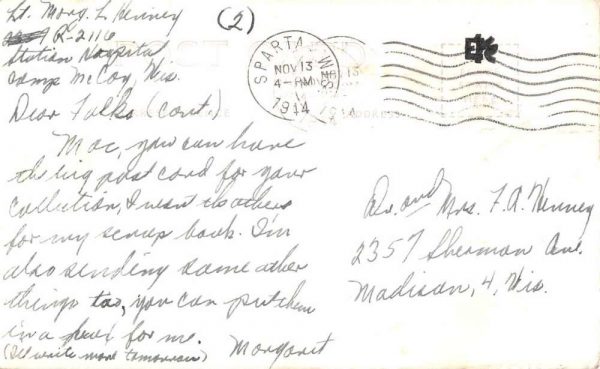 Lt. Marg. L. Henney
R-2116
Station Hospital
Camp McCoy, Wis.
(2)
SPARTA, WIS.
NOV 13
4-PM
1944
Dear Folks (cont.)
Mac, you can have
the big post card for your
collection, I want the others
for my scrap book. I'm
also sending some other
things too, you can put them
in a box for me.
(I'll write more tomorrow) Margaret
Dr. and Mrs. F. A. Henney
2357 Sherman Ave.
Madison, 4, Wis.